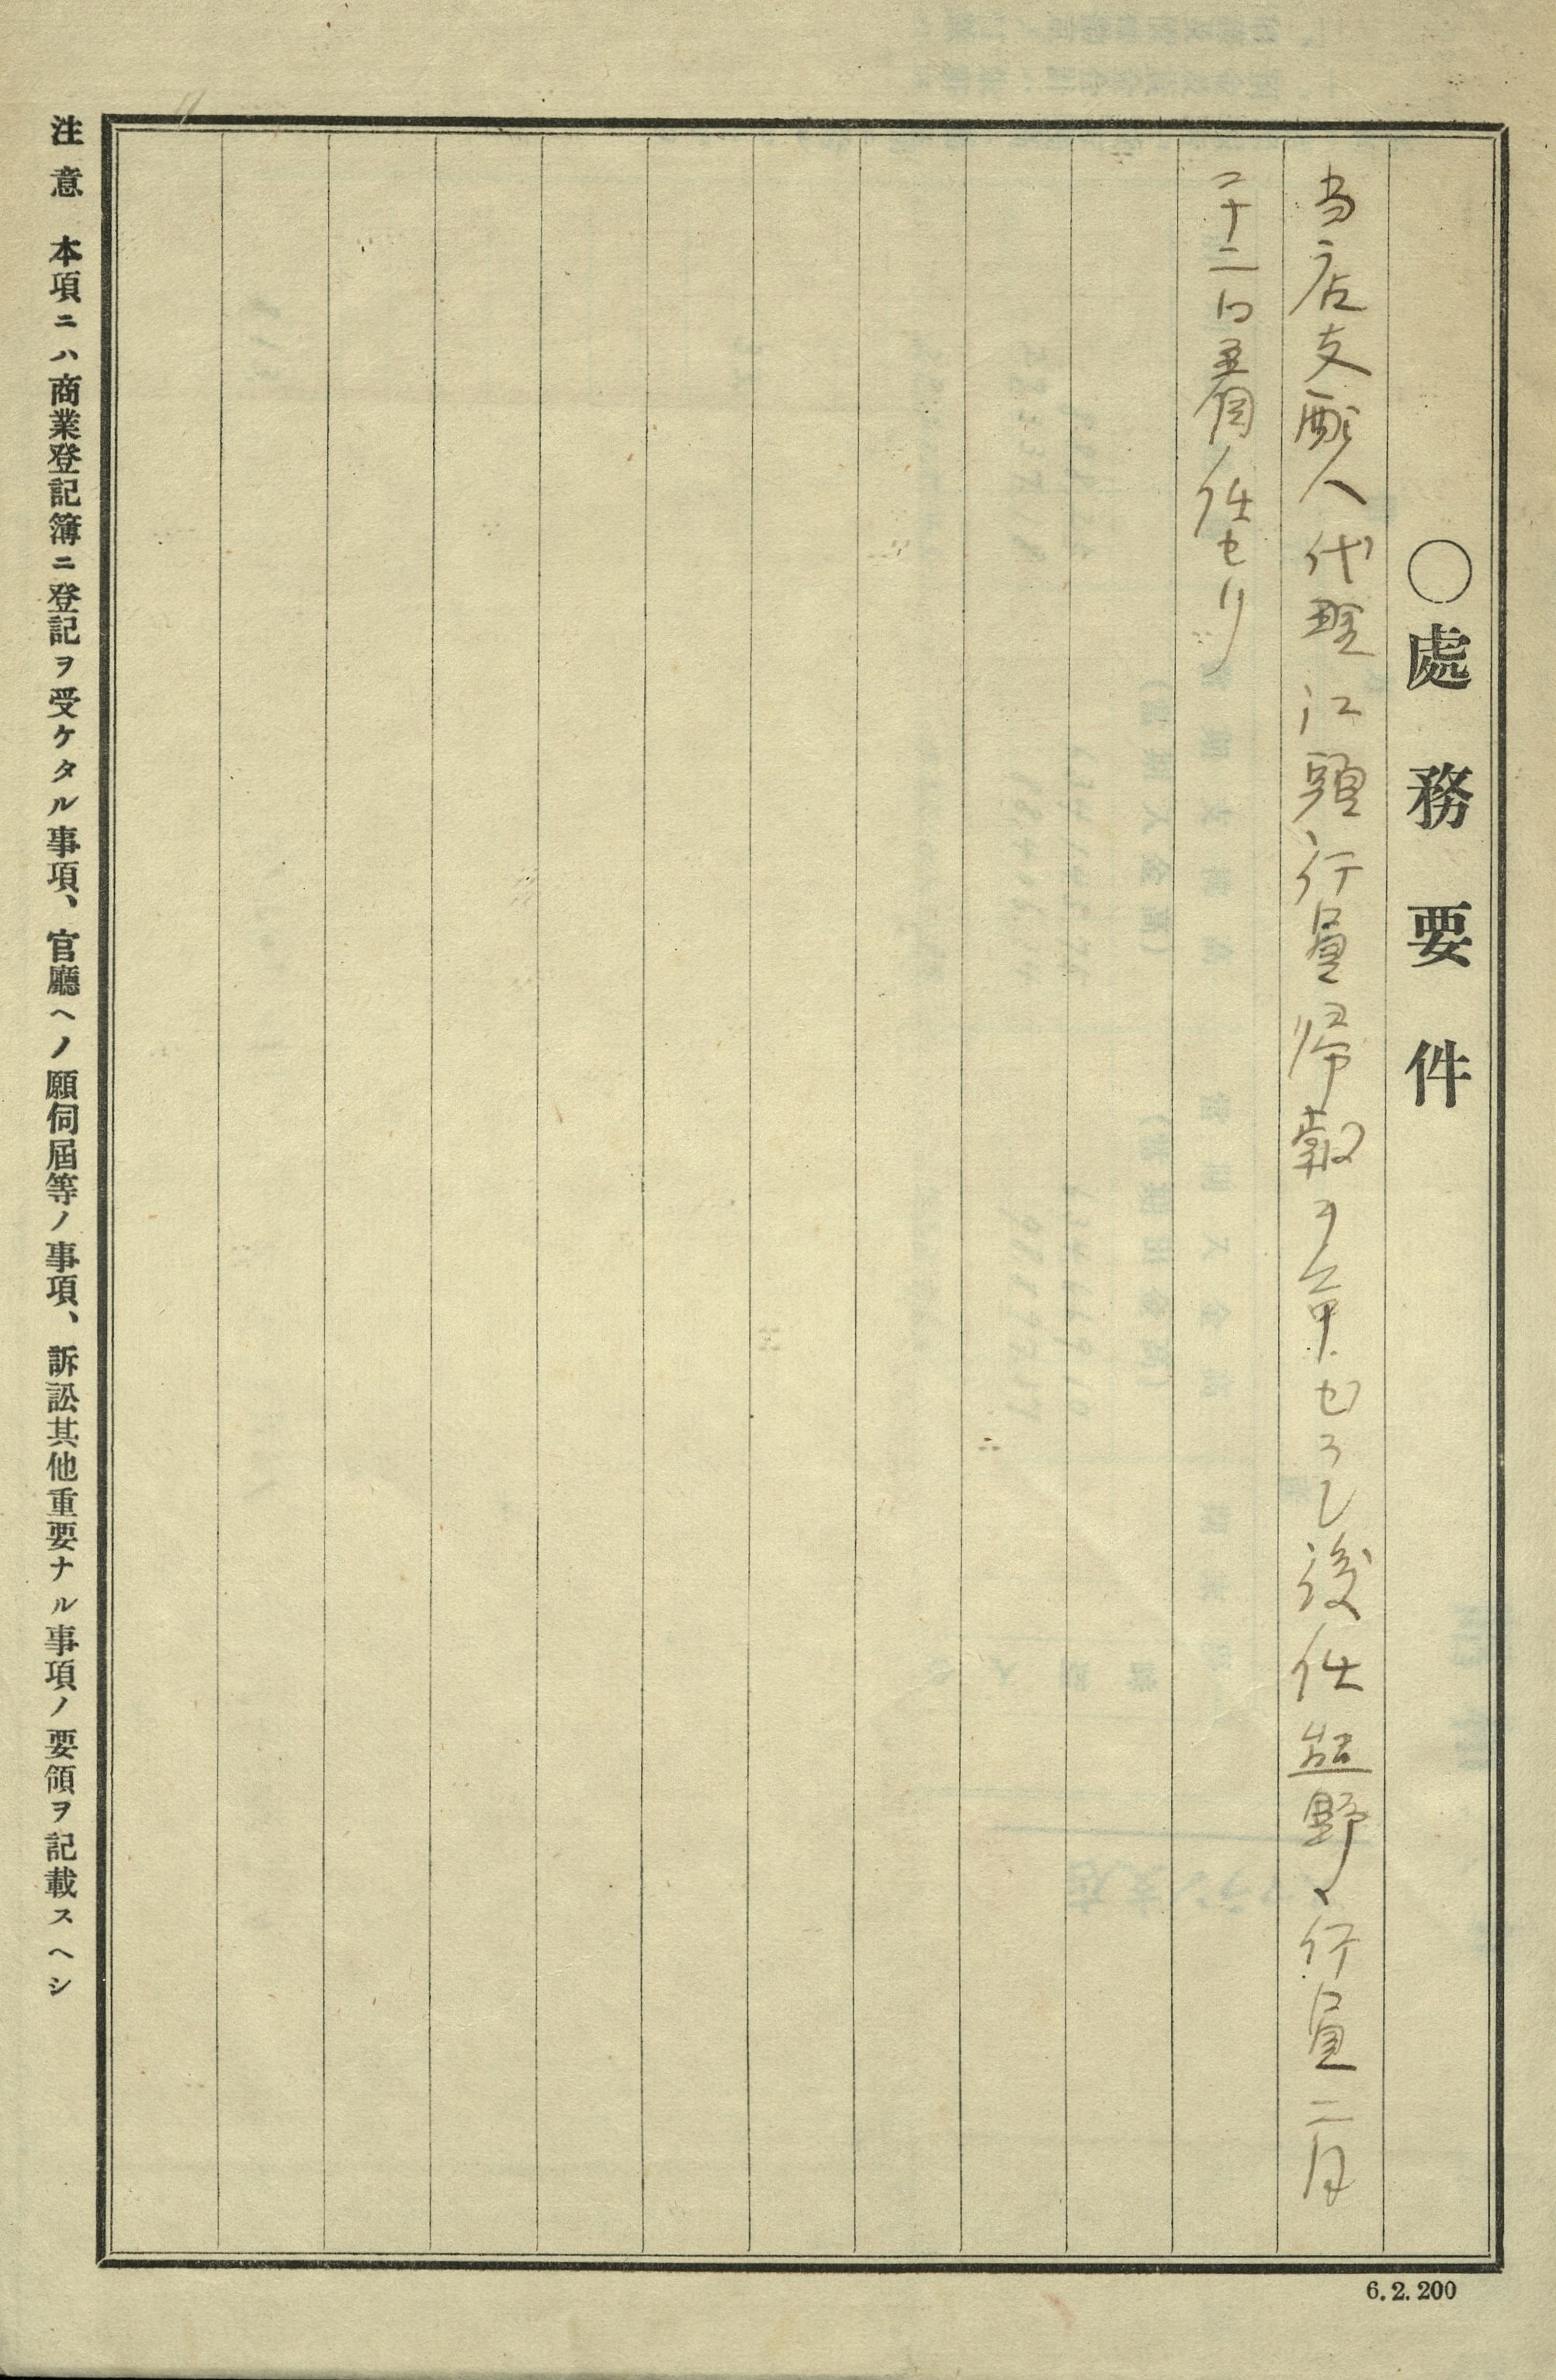 〇處務要件
当店支配人代理江頭行員帰朝ヲ命セラレ後任塩野行員二月
二十二日着任セリ
注意 本項ニハ商業登記簿ニ登記ヲ受ケタル事項、官廳ヘノ願伺屆等ノ事項、訴訟其他重要ナル事項ノ要領ヲ記載スヘシ
6.2.200